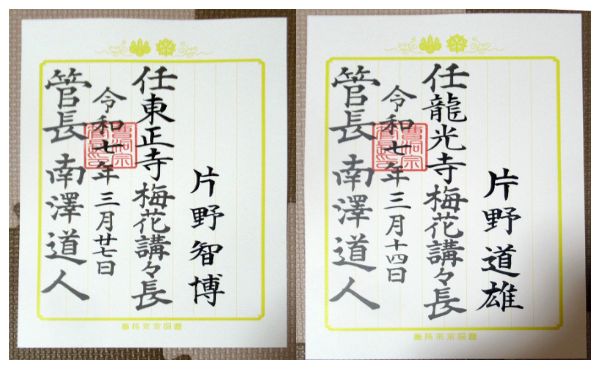 片野智博
任東正寺梅花講々長
令和七年三月廿七日
管長南澤道人
片野道雄
任龍光寺梅花講々長
令和七年三月十四日
管長南澤道人